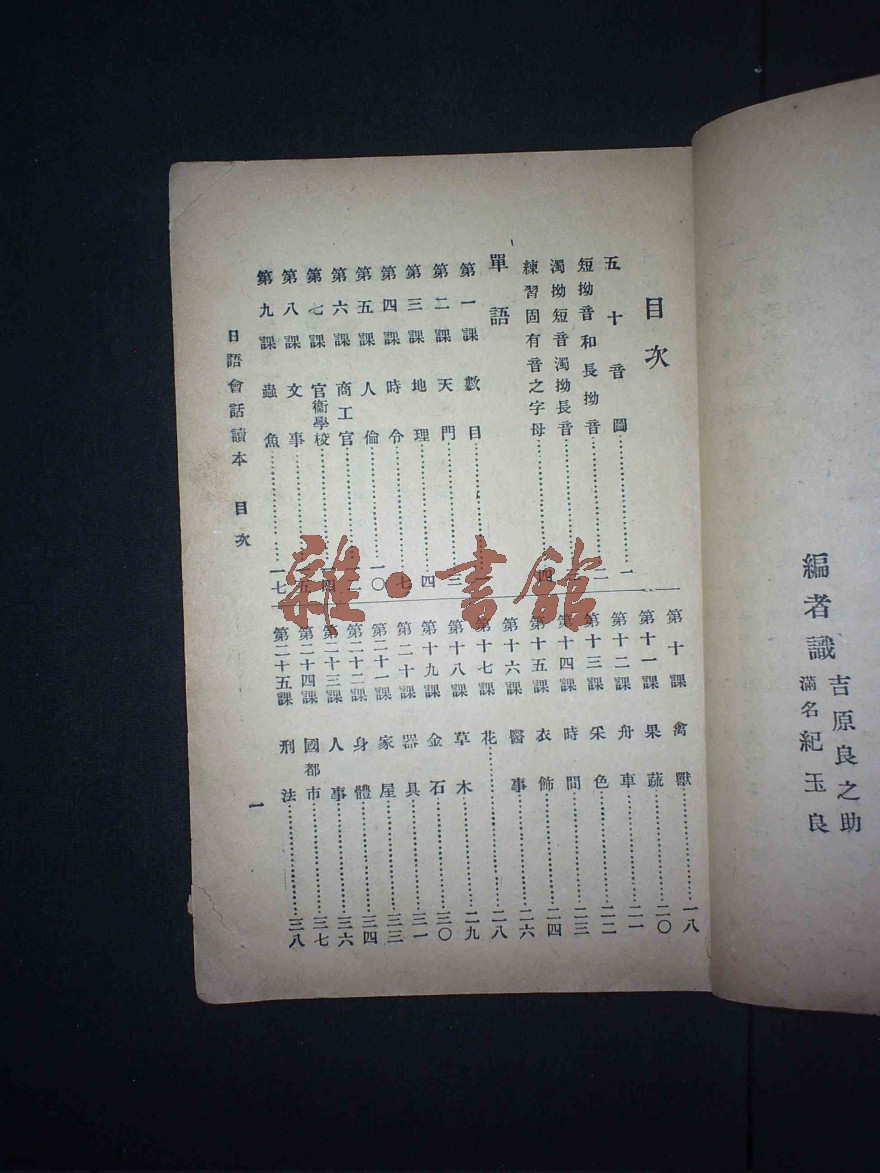 編者識 吉原良之助
滿名紀玉良
目次
五十音圖……一
短拗音和長拗音……二
濁拗短音濁拗長音……
練習固有音之字母……四
單語
第一課 數目……
第二課 天門……三
第三課 地理……四
第四課 時令……七
第五課 人倫……一〇
第六課 商工官……
第七課 官衙學校……
第八課 文事……
第九課 蟲魚……一七
第十課 禽獸……一八
第十一課 果蔬……二〇
第十二課 舟車……二一
第十三課 采色……二二
第十四課 時間……二三
第十五課 衣飾……二四
第十六課 醫事……二六
第十七課 花……二八
第十八課 草木……二九
第十九課 金石……三〇
第二十課 器具……三一
第二十一課 家屋……三三
第二十二課 身體……三四
第二十三課 人事……三六
第二十四課 國都市……三七
第二十五課 刑法……三八
日語會話讀本 目次 一
雜·書館